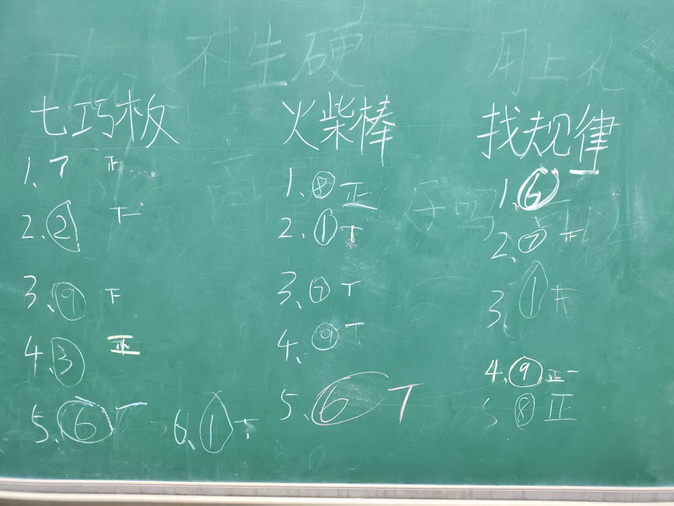 不生硬 用上
七巧板 火柴棒 找规律
1.7 正 1.⑧正 1.⑥一
2.②下 2.①丅 2.⑦下
3.⑨下 3.⑦丅 3.①
4.③正 4.⑨丅 4.⑨正一
5.⑥丅 6.①丅 5.⑥丅 5.⑧正